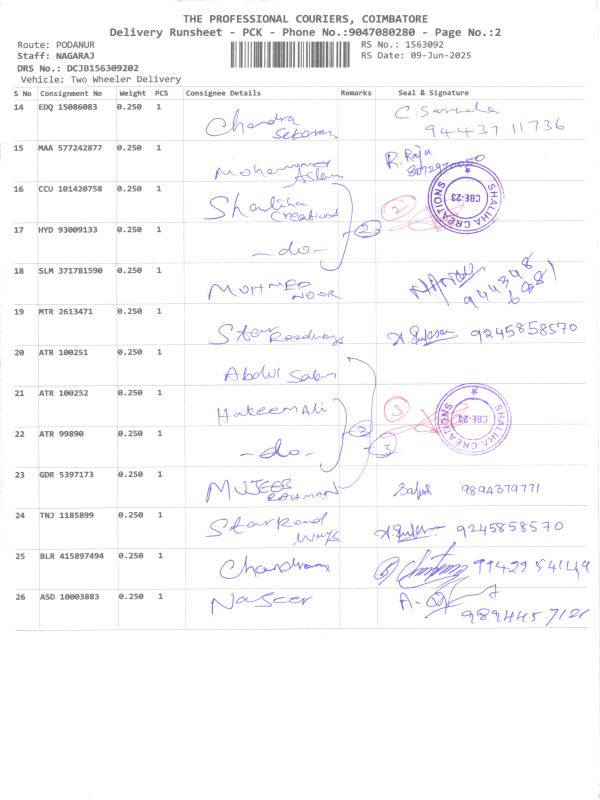 THE PROFESSIONAL COURIERS, COIMBATORE
Delivery Runsheet - PCK - Phone No.:9047080280 - Page No.:2
Route: PODANUR
RS No.: 1563092
Staff: NAGARAJ
RS Date: 09-Jun-2025
DRS No.: DCJB156309202
Vehicle: Two Wheeler Delivery
S No Consignment No Weight PCS Consignee Details Remarks Seal & Signature
14 EDQ 15086083 0.250 1 Chandra
94437 11736
15 MAA 577242877 0.250 1 Mohammed Aslam R. Raja
16 CCU 101420758 0.250 1 Shaliha Creations 2 SHALIHA CREATIONS CBE-23
17 HYD 93009133 0.250 1 -do- 2
18 SLM 371781590 0.250 1 MOHMED NOOR
19 MTR 2613471 0.250 1 Star Roadways 9245858570
20 ATR 100251 0.250 1 Abdul
21 ATR 100252 0.250 1 Hakeem Ali 3 SHALIHA CREATIONS CBE-23
22 ATR 99890 0.250 1 -do- 3
23 GDR 5397173 0.250 1 MUJEEB RAHMAN 9894379771
24 TNJ 1185899 0.250 1 Star Road ways 9245858570
25 BLR 415897494 0.250 1 Chandran
26 ASD 10003883 0.250 1 Naseer